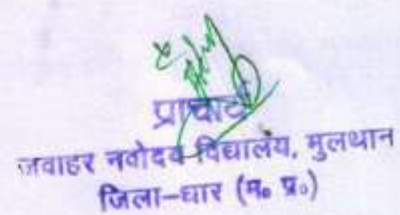 प्राचार्य
जवाहर नवोदय विद्यालय, मुलथान
जिला-धार (म० प्र०)